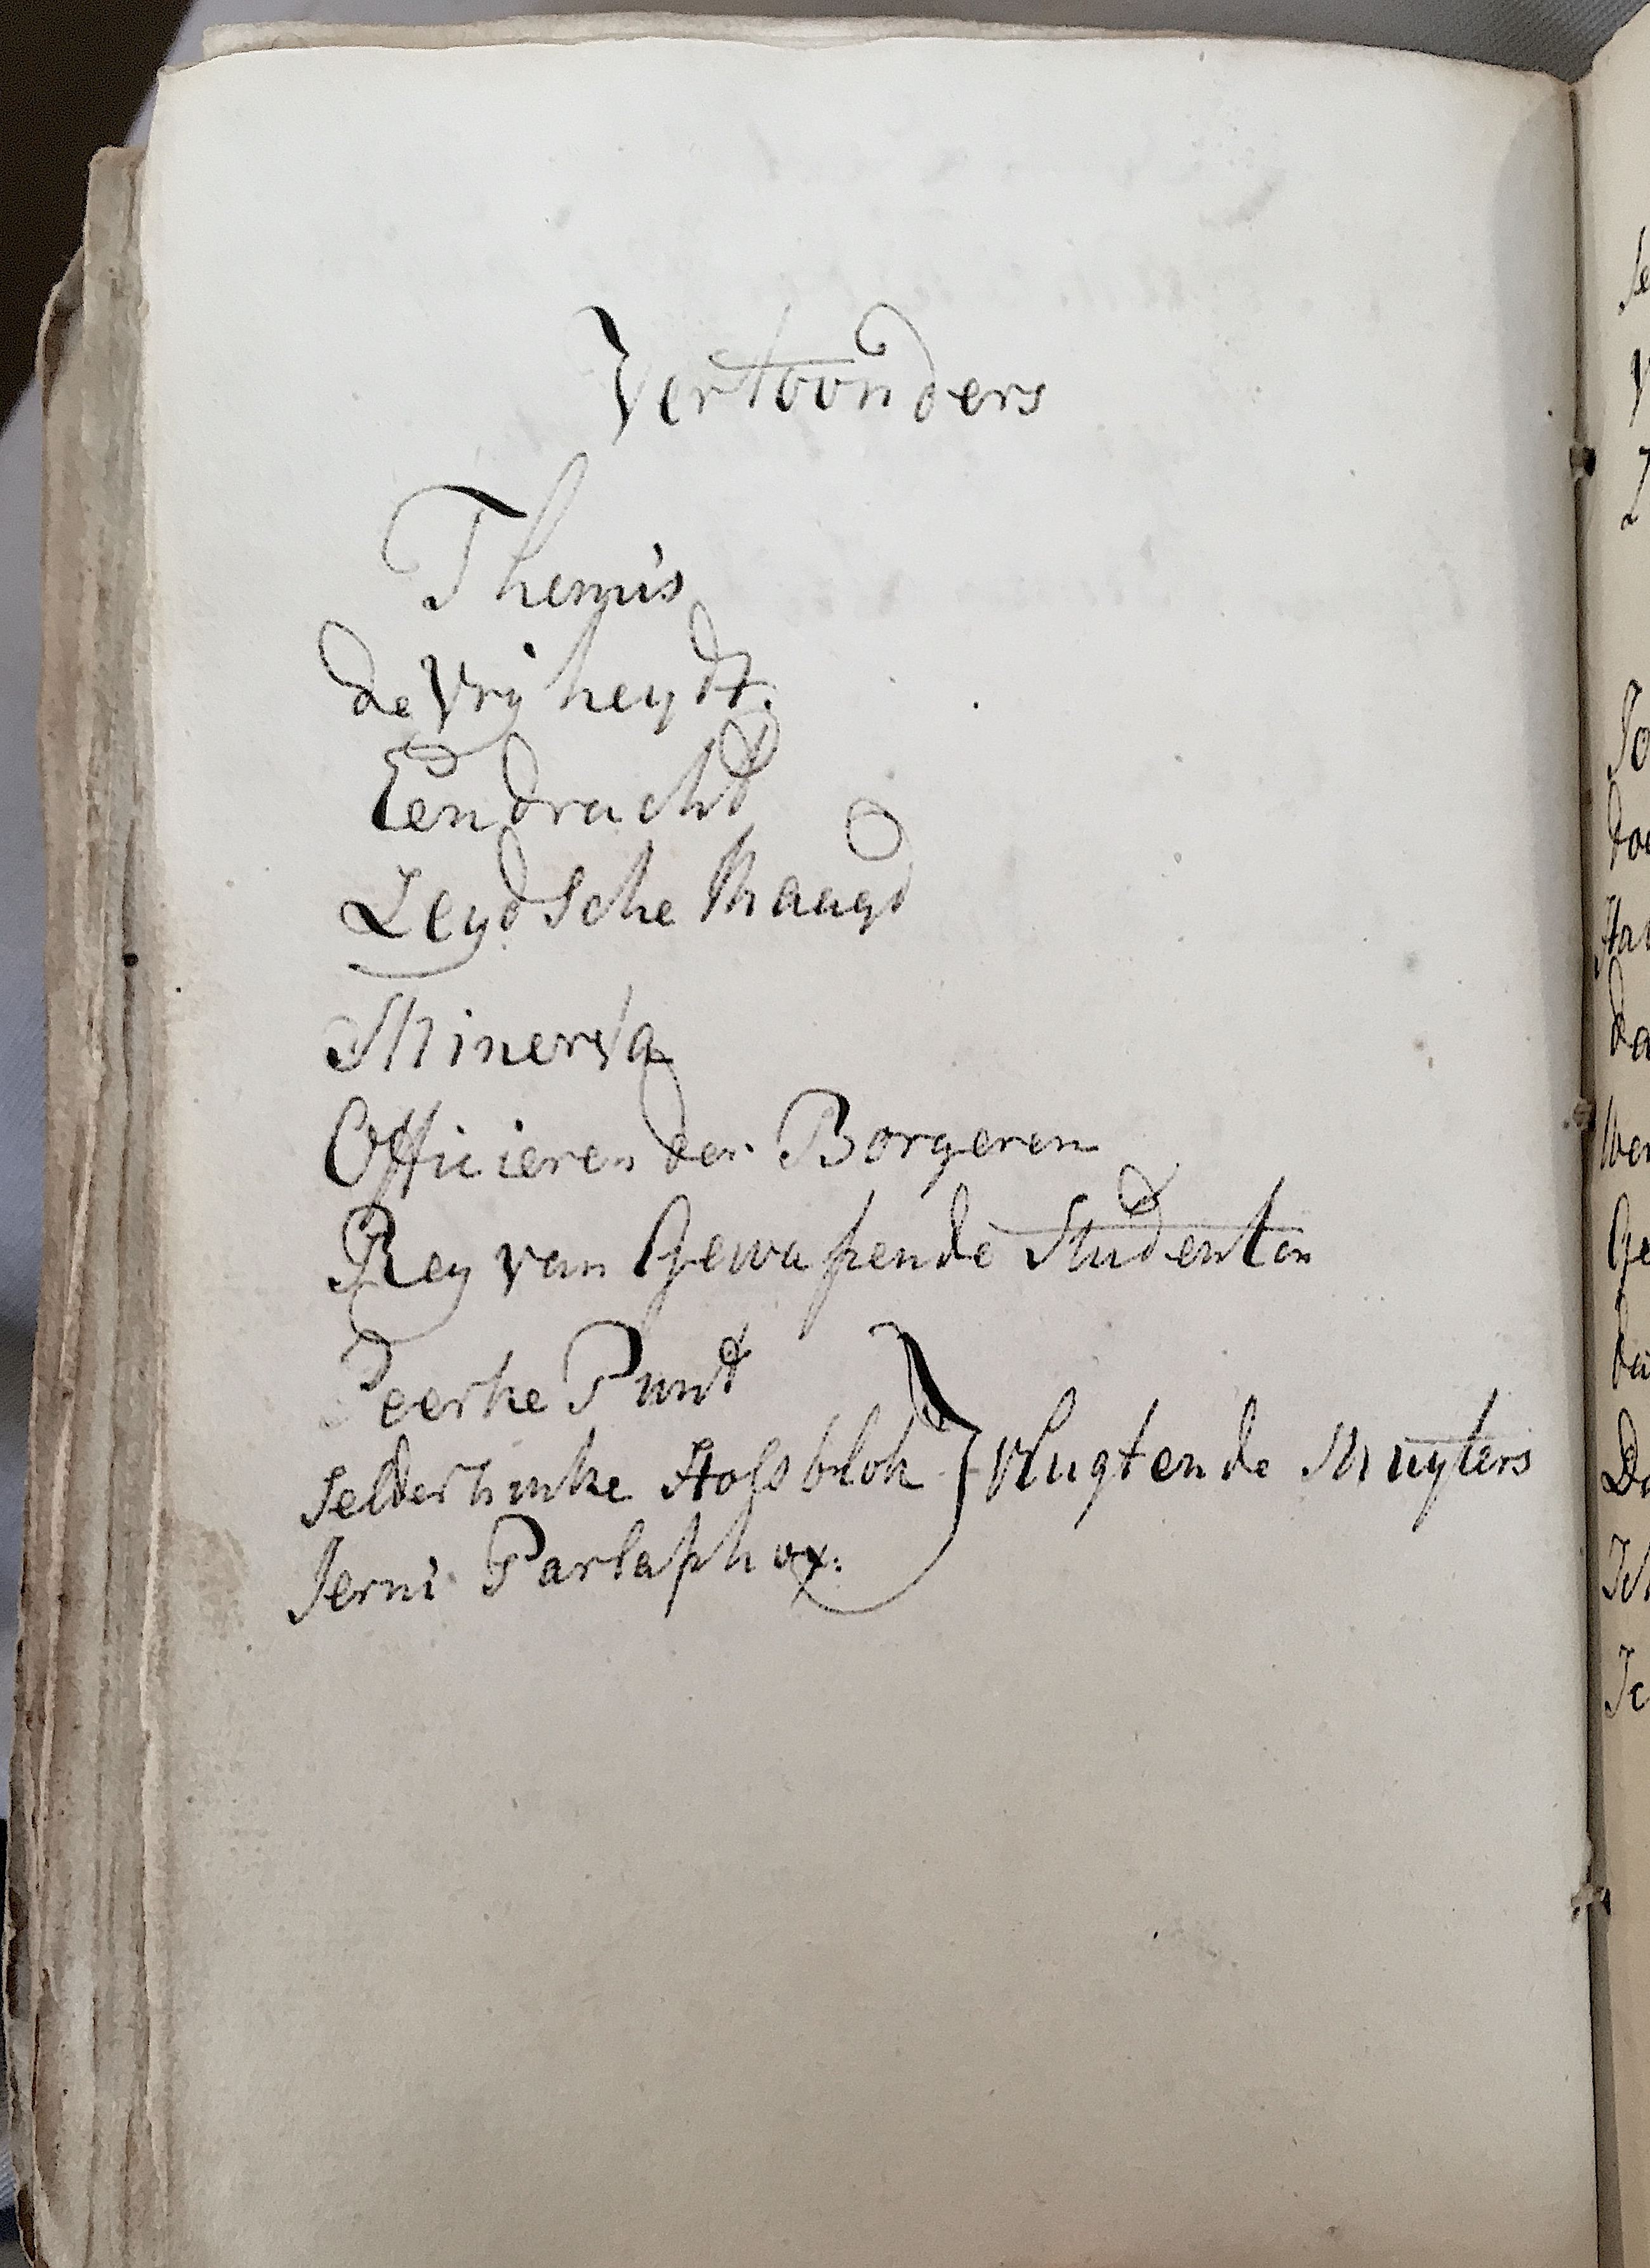 Vertoonders
Themis
de Vrijheydt.
Eendracht
Leydsche Maagd
Minerva
Officieren der Borgeren
Rey van Gewapende Studenten
Peerke Punt
Hofsblok } Vlugtende Muyters
Jerni Parlaphox.